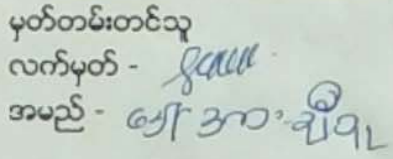 မှတ်တမ်းတင်သူ
လက်မှတ် -
အမည် - ဒေါ်အားချီရု